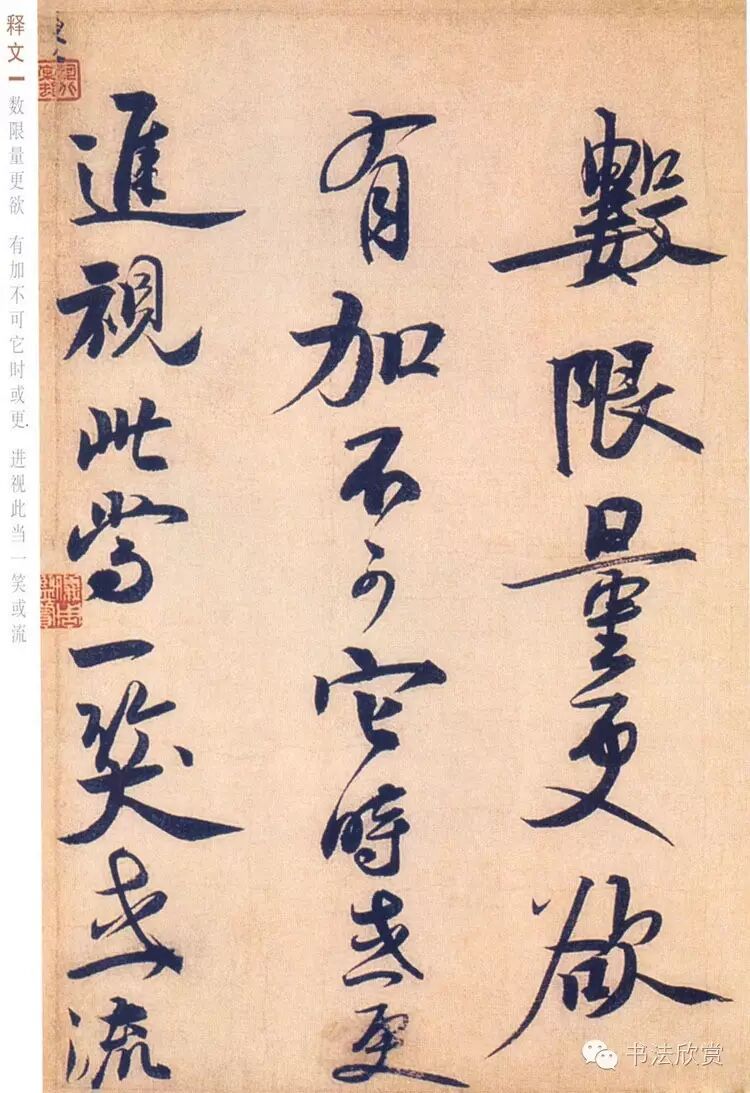 數限量更欲
有加不可它時或更
進視此當一笑或流
释文一 数限量更欲 有加不可它时或更. 进视此当一笑或流
书法欣赏